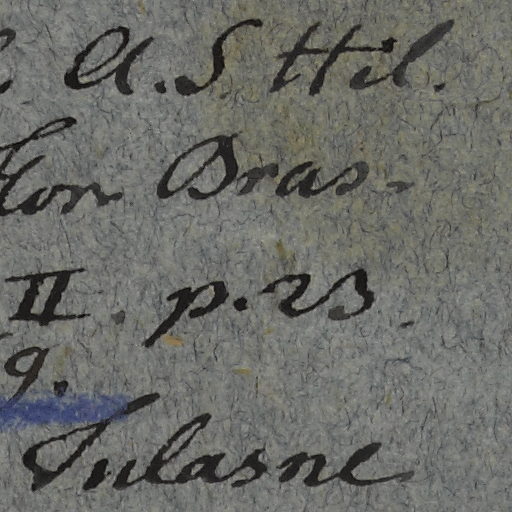 A. S Hil.
Flor Bras.
II. p. 23.
9.
Tulasne